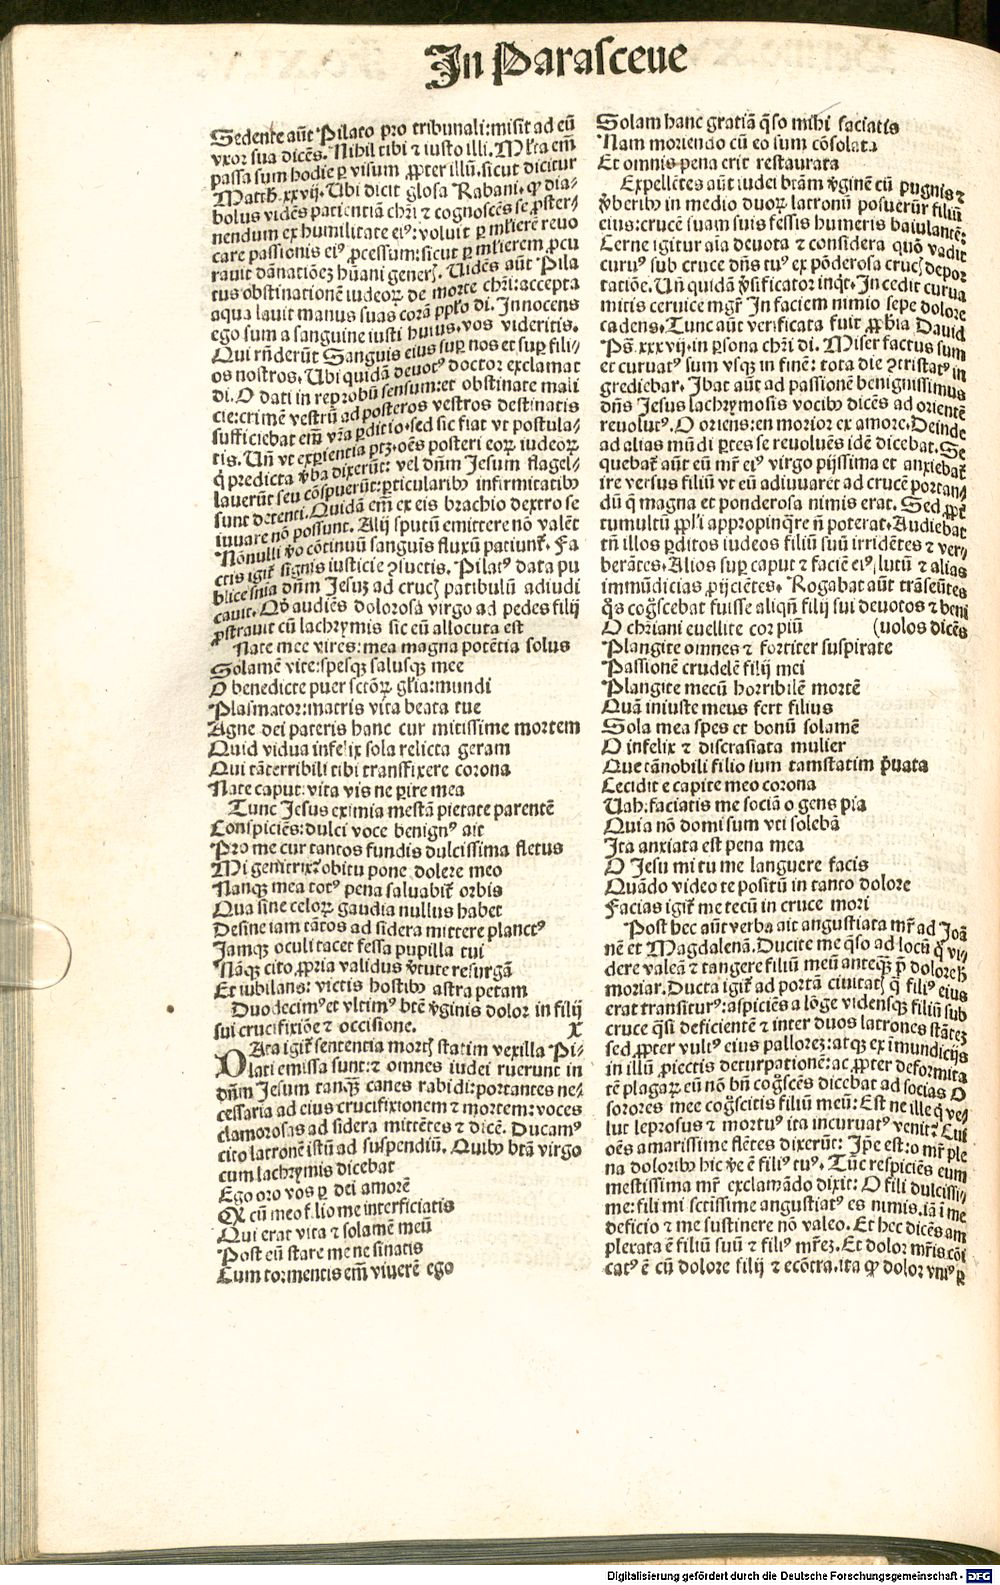 In Parasceue
Sedente aūt Pilato pro tribunali: misit ad eū
vxor sua dicēs. Nihil tibi ⁊ iusto illi. Ml̄ta em̄
passa sum hodie ꝑ visum ꝓpter illū. sicut dicitur
Matth. xxvij. Ubi dicit glosa Rabani. ꝙ dia-
bolus vidēs patientiā chr̄i ⁊ cognoscēs se ꝓster-
nendum ex humilitate eiꝰ: voluit ꝑ ml̄ierē reuo
care passionis eiꝰ ꝓcessum: sicut ꝑ ml̄ierem ꝓcu
rauit dānatiōeꝫ hūani generꝭ. Uidēs aūt Pila
tus obstinationē iudeoꝝ de morte chr̄i: accepta
aqua lauit manus suas corā ppl̄o di. Innocens
ego sum a sanguine iusti huius. vos videritis.
Qui rn̄derūt Sanguis eius suꝑ nos et suꝑ fili-
os nostros. Ubi quidā deuotꝰ doctor exclamat
di. O dati in reprobū sensum: et obstinate mali
cie: crimē vestrū ad posteros vestros destinatis
sufficiebat em̄ vr̄a ꝑditio. sed sic fiat vt postula-
tis. Un̄ vt exꝑientia ptꝫ. oēs posteri eoꝝ iudeoꝝ
q̇ predicta v̓ba dixerūt: vel dn̄m Jesum flagel-
lauerūt seu cōspuerūt: ꝑticularibꝰ infirmitatibꝰ
sunt detenti. Quidā em̄ ex eis brachio dextro se
iuuare nō possunt. Alij sputū emittere nō valēt
Nōnulli v̓o cōtinuū sanguīs fluxū patiunt᷑. Fa
ctis igit᷑ signis iusticie ꝯsuetis. Pilatꝰ data pu
blice sn̄ia dn̄m Jesuꝫ ad crucꝭ patibulū adiudi
cauit. Qd̓ audiēs dolorosa virgo ad pedes filij
ꝓstrauit cū lachrymis sic eū allocuta est
Nate mee vires: mea magna potētia solus
Solamē vite: spesqꝫ salusqꝫ mee
O benedicte puer sctōꝝ gl̄ia: mundi
Plasmator: matris vita beata tue
Agne dei pateris hanc cur mitissime mortem
Quid vidua infelix sola relicta geram
Qui tā terribili tibi transfixere corona
Nate caput: vita vis ne ꝑire mea
Tunc Jesus eximia mestā pietate parentē
Conspiciēs: dulci voce benignꝰ ait
Pro me cur tantos fundis dulcissima fletus
Mi genitrix? obitu pone dolere meo
Nanqꝫ mea totꝰ pena saluabit᷑ orbis
Qua sine celoꝝ gaudia nullus habet
Desine iam tātos ad sidera mittere planctꝰ
Jamqꝫ oculi tacet fessa pupilla tui
Nāqꝫ cito ꝓpria validus v̓tute resurgā
Et iubilans: victis hostibꝰ astra petam
Duodecimꝰ et vltimꝰ btē v̓ginis dolor in filij
sui crucifixiōe ⁊ occisione. X
DAta igit᷑ sententia mortꝭ statim vexilla Pi-
lati emissa sunt: ⁊ omnes iudei ruerunt in
dn̄m Jesum tanqꝫ canes rabidi: portantes ne-
cessaria ad eius crucifixionem ⁊ mortem: voces
clamorosas ad sidera mittētes ⁊ dicē. Ducamꝰ
cito latronē istū ad suspendiū. Quibꝰ btā virgo
cum lachrymis dicebat
Ego oro vos ꝑ dei amorē
Qꝫ cū meo filio me interficiatis
Qui erat vita ⁊ solamē meū
Post eū stare me ne sinatis
Cum tormentis em̄ viuerē ego
Solam hanc gratiā q̄so mihi faciatis
Nam moriendo cū eo sum cōsolata
Et omnis pena erit restaurata
Expellētes aūt iudei btām v̓ginē cū pugnis ⁊
v̓beribꝰ in medio duoꝝ latronū posuerūt filiū
eius: crucē suam suis fessis humeris baiulantē:
Cerne igitur aīa deuota ⁊ considera quō vadit
curuꝰ sub cruce dn̄s tuꝰ ex pōderosa crucꝭ depor
tatiōe. Un̄ quidā v̓sificator inq̇t. In cedit curua
mitis ceruice mgr̄ In faciem nimio sepe dolore
cadens. Tunc aūt verificata fuit ꝓph̄ia Dauid
Ps̄. xxxvij. in ꝑsona chr̄i di. Miser factus sum
et curuatꝰ sum vsqꝫ in finē: tota die ꝯtristatꝰ in
grediebar. Ibat aūt ad passionē benignissimus
dn̄s Jesus lachrymosis vocibꝰ dicēs ad orientē
reuolutꝰ. O oriens: en morior ex amore. Deinde
ad alias mūdi ꝑtes se reuoluēs idē dicebat. Se
quebat᷑ aūt eū mr̄ eiꝰ virgo pijssima et anxiebat᷑
ire versus filiū vt eū adiuuaret ad crucē portan-
dū q̄ magna et ponderosa nimis erat. Sed ꝓpt᷑
tumultū ppl̄i appropinq̄re n̄ poterat. Audiebat
tn̄ illos ꝑditos iudeos filiū suū irridētes ⁊ ver-
berātes. Alios suꝑ caput ⁊ faciē eiꝰ lutū ⁊ alias
immūdicias ꝓijciētes. Rogabat aūt trāseūtes
q̇s cog̓scebat fuisse aliqn̄ filij sui deuotos ⁊ beni
O chr̄iani euellite cor piū (uolos dicēs
Plangite omnes ⁊ fortiter suspirate
Passionē crudelē filij mei
Plangite mecū horribilē mortē
Quā iniuste meus fert filius
Sola mea spes et bonū solamē
O infelix ⁊ discrasiata mulier
Que tā nobili filio sum tam statim p̄uata
Cecidit e capite meo corona
Uah: faciatis me sociā o gens pia
Quia nō domi sum vti solebā
Ita anxiata est pena mea
O Jesu mi tu me languere facis
Quādo video te positū in tanto dolore
Facias igit᷑ me tecū in cruce mori
Post hec aūt verba ait angustiata mr̄ ad Joā
nē et Magdalenā. Ducite me q̄so ad locū q̊ vi-
dere valeā ⁊ tangere filiū meū anteqꝫ p̄ dolore h̓
moriar. Ducta igit᷑ ad portā ciuitatꝭ q̄ filiꝰ eius
erat transiturꝰ: aspiciēs a lōge vidensqꝫ filiū sub
cruce q̄si deficientē ⁊ inter duos latrones stāteꝫ
sed ꝓpter vultꝰ eius palloreꝫ: atqꝫ ex īmundicijs
in illū ꝓiectis deturpationē: ac ꝓpter deformita
tē plagaꝝ eū nō bn̄ cog̓scēs dicebat ad socias O
sorores mee cog̓scitis filiū meū: Est ne ille q̇ ve-
lut leprosus ⁊ mortuꝰ ita incuruatꝰ venit? Cui
oēs amarissime flētes dixerūt: Ip̄e est: o mr̄ ple
na doloribꝰ hic v̓e ē filiꝰ tuꝰ. Tūc respiciēs eum
mestissima mr̄ exclamādo dixit: O fili dulcissi-
me: fili mi sctīssime angustiatꝰ es nimis. iā ī me
deficio ⁊ me sustinere nō valeo. Et hec dicēs am
plexata ē filiū suū ⁊ filiꝰ mr̄eꝫ. Et dolor mr̄is cōi
catꝰ ē cū dolore filij ⁊ ecōtra. ita ꝙ dolor vniꝰ ꝑ
Digitalisierung gefördert durch die Deutsche Forschungsgemeinschaft - DFG